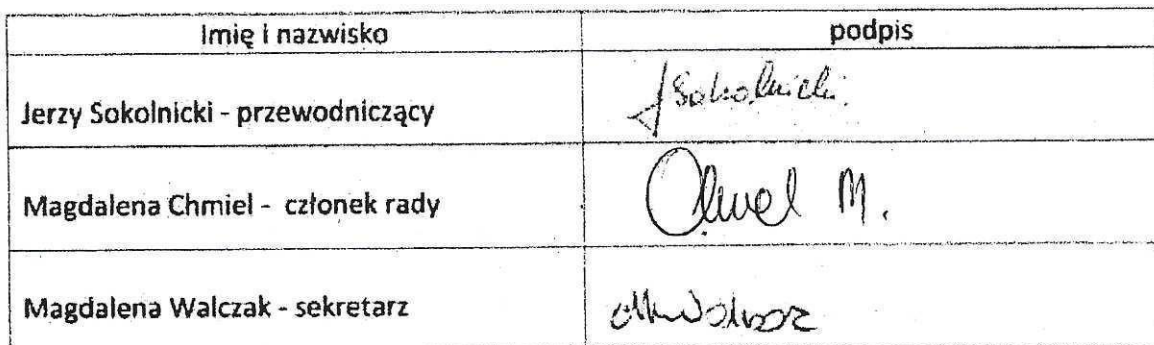 Imię i nazwisko podpis
Jerzy Sokolnicki - przewodniczący JSokolnicki
Magdalena Chmiel - członek rady Chmiel M.
Magdalena Walczak - sekretarz